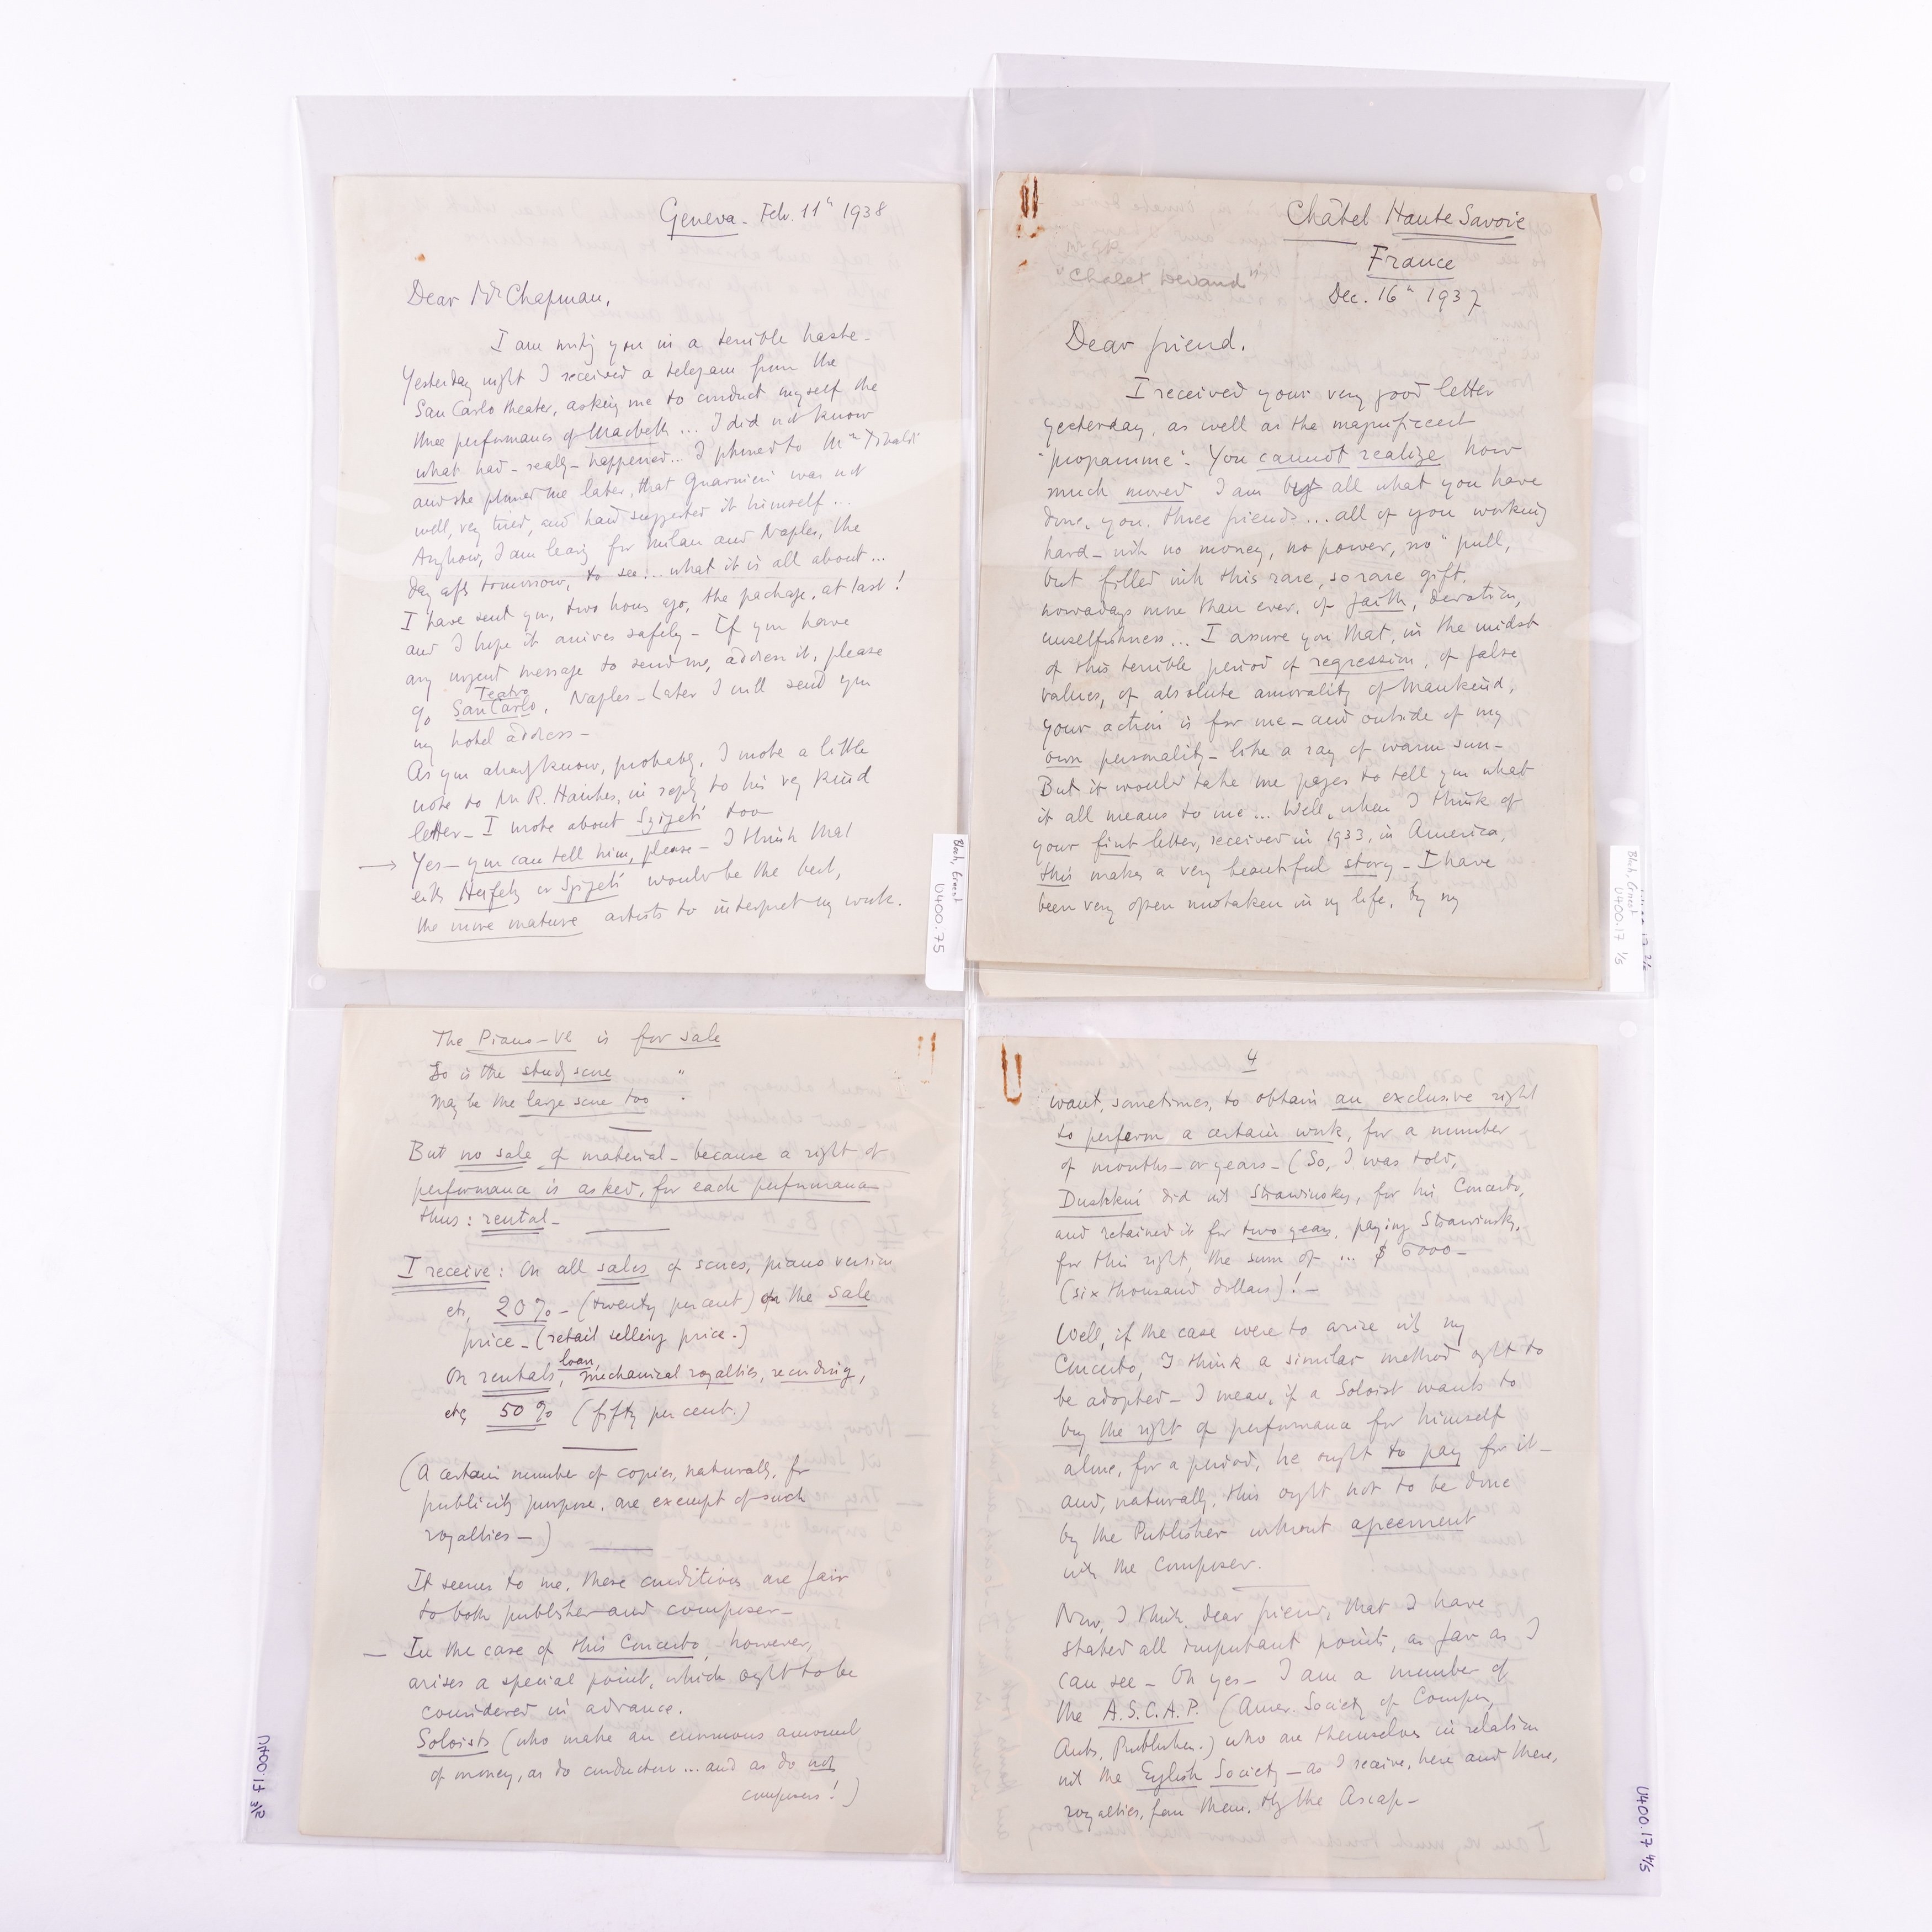 Geneva - Feb. 11th 1938
Dear Mr Chapman,
I am writing you in a terrible haste -
Yesterday night I received a telegram from the
San Carlo theater, asking me to conduct myself the
three performances of Macbeth ... I did not know
what had - really - happened... I phoned to Mme Tibaldi
and she phoned me later, that Guarnieri was not
well, very tired, and had suggested it himself ...
Anyhow, I am leaving for Milan and Naples, the
day after tomorrow, to see... what it is all about ...
I have sent you, two hours ago, the package, at last!
and I hope it arrives safely - If you have
any urgent message to send me, address it, please
c/o Teatro San Carlo, Naples - Later I will send you
my hotel address -
As you already know, probably, I wrote a little
note to Mr R. Hawkes, in reply to his very kind
letter - I wrote about Szigeti too -
→ Yes - you can tell him, please - I think that
either Heifetz or Szigeti would be the best,
the more mature artists to interpret my work.
Bloch, Ernest
U400.75
Châtel Haute Savoie
France
"Chalet Devand"
Dec. 16th 1937
Dear friend.
I received your very good letter
yesterday, as well as the magnificent
"programme". You cannot realize how
much moved I am by all what you have
done, you, three friends ... all of you working
hard - with no money, no power, no "pull,
but filled with this rare, so rare gift,
nowadays more than ever, of faith, devotion,
unselfishness ... I assure you that, in the midst
of this terrible period of regression, of false
values, of absolute amorality of Mankind,
your action is for me - and outside of my
own personality - like a ray of warm sun -
But it would take me pages to tell you what
it all means to me ... Well, when I think of
your first letter, received in 1933, in America,
this makes a very beautiful story - I have
been very often mistaken in my life, by my
Bloch, Ernest
U400.17 1/5
The Piano-Vl is for sale
So is the study score "
May be the large score too "
But no sale of material - because a right of
performance is asked, for each performance
thus: rental -
I receive: On all sales of scores, piano version
etc, 20% - (twenty per cent) on the sale
price - (retail selling price.)
On rentals, loan, mechanical royalties, recording,
etc, 50% (fifty per cent.)
(A certain number of copies, naturally, for
publicity purpose, are exempt of such
royalties -)
It seems to me, these conditions are fair
to both publisher and composer -
- In the case of this Concerto, however,
arises a special point, which ought to be
considered in advance.
Soloists (who make an enormous amount
of money, as do conductors... and as do not
composers!)
U400.17 3/5
4
want, sometimes, to obtain an exclusive right
to perform a certain work, for a number
of months - or years - (So, I was told,
Dushkin did with Strawinsky, for his Concerto,
and retained it for two years, paying Strawinsky,
for this right, the sum of ... $ 6000 -
(six thousand dollars)! -
Well, if the case were to arise with my
Concerto, I think a similar method ought to
be adopted - I mean, if a Soloist wants to
buy the right of performance for himself
alone, for a period, he ought to pay for it -
and, naturally, this ought not to be done
by the Publisher without agreement
with the Composer.
Now, I think, dear friend, that I have
stated all important points, as far as I
can see - Oh yes - I am a member of
the A.S.C.A.P. (Amer. Society of Compos,
Auts, Publishers.) who are themselves in relation
with the English Society - as I receive, here and there,
royalties, from them, by the Ascap -
U400.17 4/5